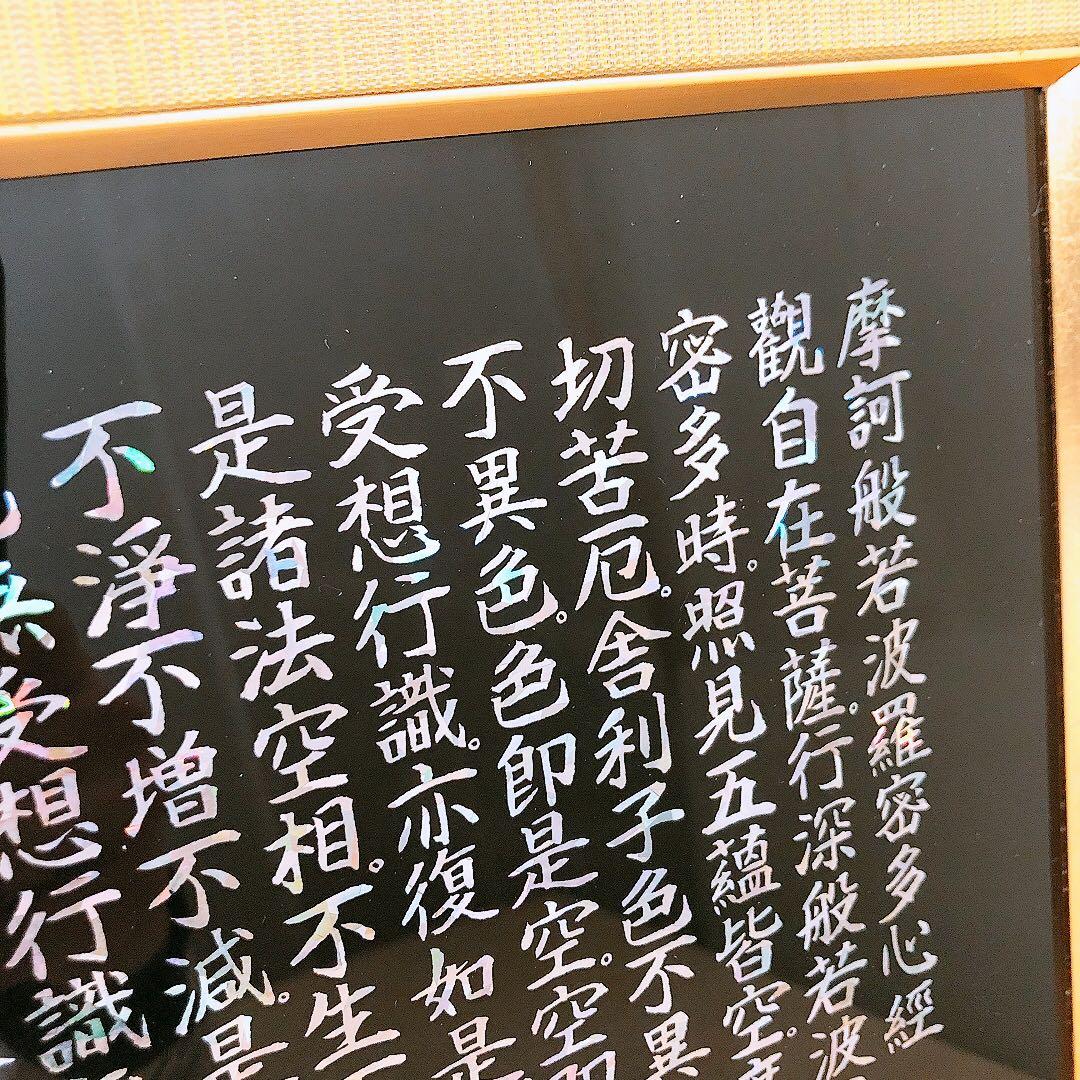 摩訶般若波羅密多心經
觀自在菩薩。行深般若波
密多時。照見五蘊皆空。度
切苦厄。舍利子色不異
不異色。色即是空。空即
受想行識。亦復如是
是諸法空相。不生不
不淨不增不減。是
無受想行識